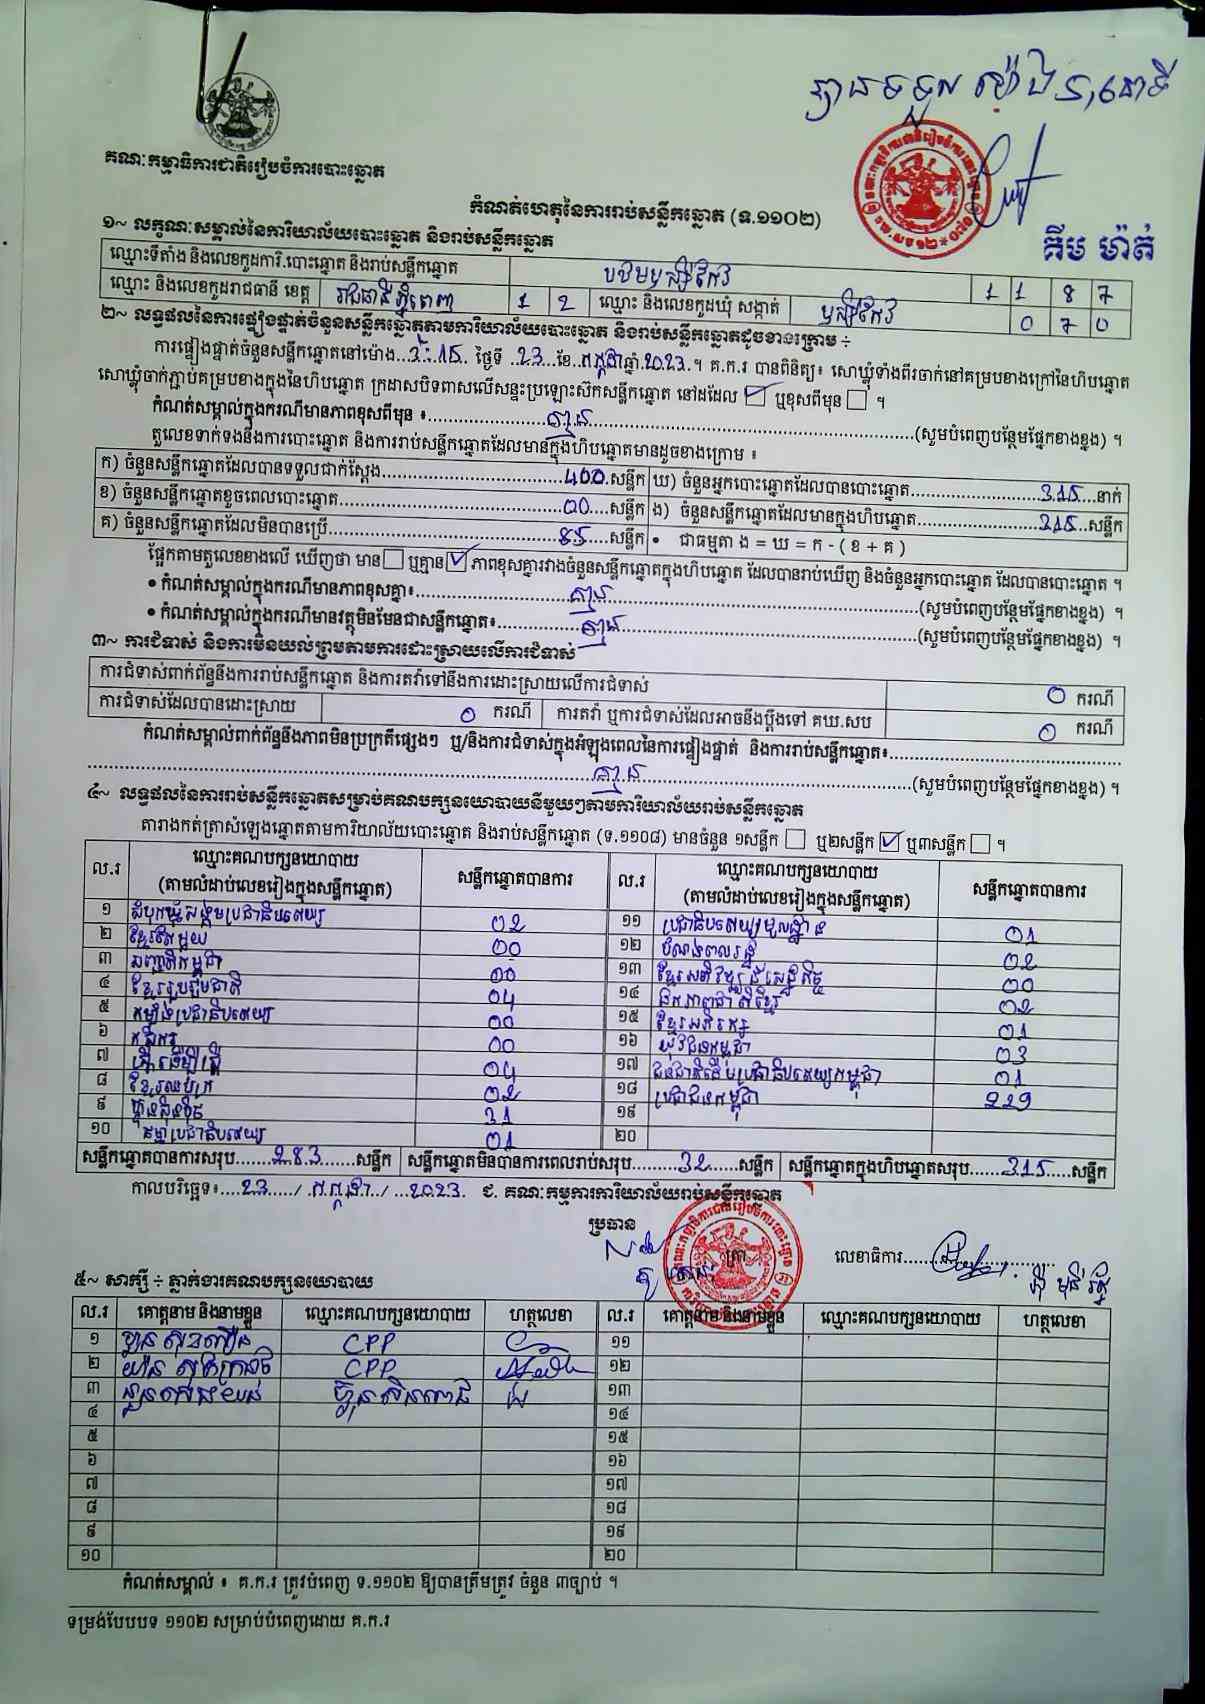 គណៈកម្មាធិការជាតិរៀបចំការបោះឆ្នោត
កំណត់ហេតុនៃការរាប់សន្លឹកឆ្នោត (ទ.១១០២)
គឹម ម៉ាត់
១~ លក្ខណៈសម្គាល់នៃការិយាល័យបោះឆ្នោត និងរាប់សន្លឹកឆ្នោត
ឈ្មោះទីតាំង និងលេខកូដការិ.បោះឆ្នោត និងរាប់សន្លឹកឆ្នោត បឋមឫស្សីកែវ 1 1 8 7
ឈ្មោះ និងលេខកូដរាជធានី ខេត្ត រាជធានីភ្នំពេញ 1 2 ឈ្មោះ និងលេខកូដឃុំ សង្កាត់ ឫស្សីកែវ 0 7 0
២~ លទ្ធផលនៃការផ្ទៀងផ្ទាត់ចំនួនសន្លឹកឆ្នោតតាមការិយាល័យបោះឆ្នោត និងរាប់សន្លឹកឆ្នោតដូចខាងក្រោម ÷
ការផ្ទៀងផ្ទាត់ចំនួនសន្លឹកឆ្នោតនៅម៉ោង 3:15 ថ្ងៃទី 23 ខែ កក្កដា ឆ្នាំ 2023 ។ គ.ក.រ បានពិនិត្យ៖ សោឃ្លុំទាំងពីរចាក់នៅគម្របខាងក្រៅនៃហិបឆ្នោត
សោឃ្លុំចាក់ភ្ជាប់គម្របខាងក្នុងនៃហិបឆ្នោត ក្រដាសបិទពាសលើសន្ទះប្រឡោះស៊កសន្លឹកឆ្នោត នៅដដែល ☑ ឬខុសពីមុន ☐ ។
កំណត់សម្គាល់ក្នុងករណីមានភាពខុសពីមុន ៖ គ្មាន (សូមបំពេញបន្ថែមផ្នែកខាងខ្នង) ។
តួលេខទាក់ទងនឹងការបោះឆ្នោត និងការរាប់សន្លឹកឆ្នោតដែលមានក្នុងហិបឆ្នោតមានដូចខាងក្រោម ៖
ក) ចំនួនសន្លឹកឆ្នោតដែលបានទទួលជាក់ស្តែង 400 សន្លឹក ឃ) ចំនួនអ្នកបោះឆ្នោតដែលបានបោះឆ្នោត 315 នាក់
ខ) ចំនួនសន្លឹកឆ្នោតខូចពេលបោះឆ្នោត 00 សន្លឹក ង) ចំនួនសន្លឹកឆ្នោតដែលមានក្នុងហិបឆ្នោត 315 សន្លឹក
គ) ចំនួនសន្លឹកឆ្នោតដែលមិនបានប្រើ 85 សន្លឹក • ជាធម្មតា ង = ឃ = ក - ( ខ + គ )
ផ្អែកតាមតួលេខខាងលើ ឃើញថា មាន ☐ ឬគ្មាន ☑ ភាពខុសគ្នារវាងចំនួនសន្លឹកឆ្នោតក្នុងហិបឆ្នោត ដែលបានរាប់ឃើញ និងចំនួនអ្នកបោះឆ្នោត ដែលបានបោះឆ្នោត ។
• កំណត់សម្គាល់ក្នុងករណីមានភាពខុសគ្នា៖ គ្មាន (សូមបំពេញបន្ថែមផ្នែកខាងខ្នង) ។
• កំណត់សម្គាល់ក្នុងករណីមានវត្ថុមិនមែនជាសន្លឹកឆ្នោត៖ គ្មាន (សូមបំពេញបន្ថែមផ្នែកខាងខ្នង) ។
៣~ ការជំទាស់ និងការមិនយល់ព្រមតាមការដោះស្រាយលើការជំទាស់
ការជំទាស់ពាក់ព័ន្ធនឹងការរាប់សន្លឹកឆ្នោត និងការតវ៉ាទៅនឹងការដោះស្រាយលើការជំទាស់ 0 ករណី
ការជំទាស់ដែលបានដោះស្រាយ 0 ករណី ការតវ៉ា ឬការជំទាស់ដែលអាចនឹងប្តឹងទៅ គឃ.សប 0 ករណី
កំណត់សម្គាល់ពាក់ព័ន្ធនឹងភាពមិនប្រក្រតីផ្សេងៗ ឬ/និងការជំទាស់ក្នុងអំឡុងពេលនៃការផ្ទៀងផ្ទាត់ និងការរាប់សន្លឹកឆ្នោត៖
គ្មាន (សូមបំពេញបន្ថែមផ្នែកខាងខ្នង) ។
៤~ លទ្ធផលនៃការរាប់សន្លឹកឆ្នោតសម្រាប់គណបក្សនយោបាយនីមួយៗតាមការិយាល័យរាប់សន្លឹកឆ្នោត
តារាងកត់ត្រាសំឡេងឆ្នោតតាមការិយាល័យបោះឆ្នោត និងរាប់សន្លឹកឆ្នោត (ទ.១១០៨) មានចំនួន ១សន្លឹក ☐ ឬ២សន្លឹក ☑ ឬ៣សន្លឹក ☐ ។
ល.រ ឈ្មោះគណបក្សនយោបាយ (តាមលំដាប់លេខរៀងក្នុងសន្លឹកឆ្នោត) សន្លឹកឆ្នោតបានការ ល.រ ឈ្មោះគណបក្សនយោបាយ (តាមលំដាប់លេខរៀងក្នុងសន្លឹកឆ្នោត) សន្លឹកឆ្នោតបានការ
១ សំបុកឃ្មុំសង្គមប្រជាធិបតេយ្យ 02 ១១ ប្រជាធិបតេយ្យមូលដ្ឋាន 01
២ ខ្មែរតែមួយ 00 ១២ បំណងពលរដ្ឋ 02
៣ សញ្ជាតិកម្ពុជា 00 ១៣ ខ្មែរអភិវឌ្ឍន៍សេដ្ឋកិច្ច 00
៤ ខ្មែររួបរួមជាតិ 04 ១៤ ឯកភាពជាតិខ្មែរ 02
៥ កម្លាំងប្រជាធិបតេយ្យ 00 ១៥ ខ្មែរអភិរក្ស 01
៦ កសិករ 00 ១៦ យុវជនកម្ពុជា 03
៧ ស្ត្រីដើម្បីស្ត្រី 04 ១៧ ជនជាតិដើមប្រជាធិបតេយ្យកម្ពុជា 01
៨ ខ្មែរឈប់ក្រ 02 ១៨ ប្រជាជនកម្ពុជា 229
៩ ហ្វ៊ុនស៊ិនប៉ិច 31 ១៩
១០ ធម្មាធិបតេយ្យ 01 ២០
សន្លឹកឆ្នោតបានការសរុប 283 សន្លឹក សន្លឹកឆ្នោតមិនបានការពេលរាប់សរុប 32 សន្លឹក សន្លឹកឆ្នោតក្នុងហិបឆ្នោតសរុប 315 សន្លឹក
កាលបរិច្ឆេទ៖ 23 / កក្កដា / 2023 ជ. គណៈកម្មការការិយាល័យរាប់សន្លឹកឆ្នោត
ប្រធាន ត្រា លេខាធិការ
៥~ សាក្សី ÷ ភ្នាក់ងារគណបក្សនយោបាយ
ល.រ គោត្តនាម និងនាមខ្លួន ឈ្មោះគណបក្សនយោបាយ ហត្ថលេខា ល.រ គោត្តនាម និងនាមខ្លួន ឈ្មោះគណបក្សនយោបាយ ហត្ថលេខា
១ CPP ១១
២ CPP ១២
៣ ហ្វ៊ុនស៊ិនប៉ិច ១៣
៤ ១៤
៥ ១៥
៦ ១៦
៧ ១៧
៨ ១៨
៩ ១៩
១០ ២០
កំណត់សម្គាល់ ៖ គ.ក.រ ត្រូវបំពេញ ទ.១១០២ ឱ្យបានត្រឹមត្រូវ ចំនួន ៣ច្បាប់ ។
ទម្រង់បែបបទ ១១០២ សម្រាប់បំពេញដោយ គ.ក.រ